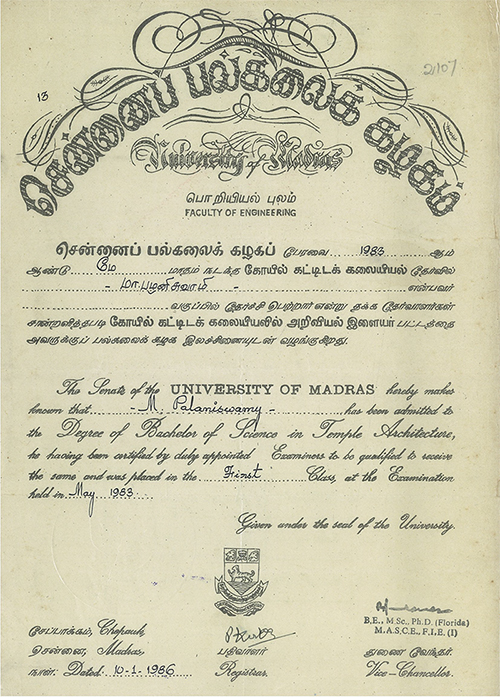 2107
13
சென்னைப் பல்கலைக் கழகம்
University of Madras
பொறியியல் புலம்
FACULTY OF ENGINEERING
சென்னைப் பல்கலைக் கழகப் பேரவை 1983 ஆம்
ஆண்டு மே மாதம் நடந்த கோயில் கட்டிடக் கலையியல் தேர்வில்
- மா.பழனிசுவாமி - என்பவர்
வகுப்பில் தேர்ச்சி பெற்றார் என்று தக்க தேர்வாளர்கள்
சான்றளித்தபடி கோயில் கட்டிடக் கலையியலில் அறிவியல் இளையர் பட்டத்தை
அவருக்குப் பல்கலைக் கழக இலச்சினையுடன் வழங்குகிறது.
The Senate of the UNIVERSITY OF MADRAS hereby makes
known that - M. Palaniswamy - has been admitted to
the Degree of Bachelor of Science in Temple Architecture,
he having been certified by duly appointed Examiners to be qualified to receive
the same and was placed in the First Class, at the Examination
held in May 1983
Given under the seal of the University.
B.E., M.Sc., Ph.D. (Florida)
M.A.S.C.E., F.I.E. (I)
சேப்பாக்கம், Chepauk,
சென்னை, Madras, பதிவாளர் துணை வேந்தர்.
நாள். Dated 10-1-1986 Registrar. Vice-Chancellor.